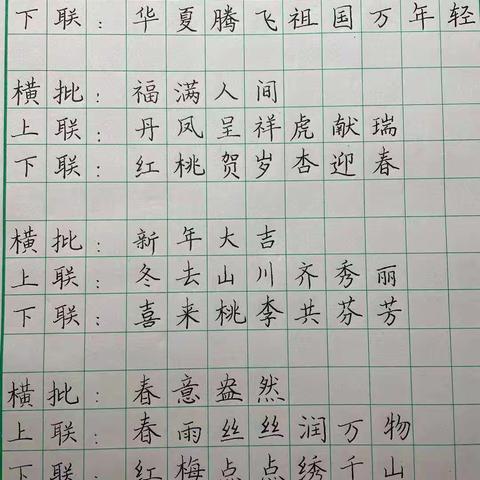 下联：华夏腾飞祖国万年轻
横批：福满人间
上联：丹凤呈祥虎献瑞
下联：红桃贺岁杏迎春
横批：新年大吉
上联：冬去山川齐秀丽
下联：喜来桃李共芬芳
横批：春意盎然
上联：春雨丝丝润万物
下联：红梅点点绣千山